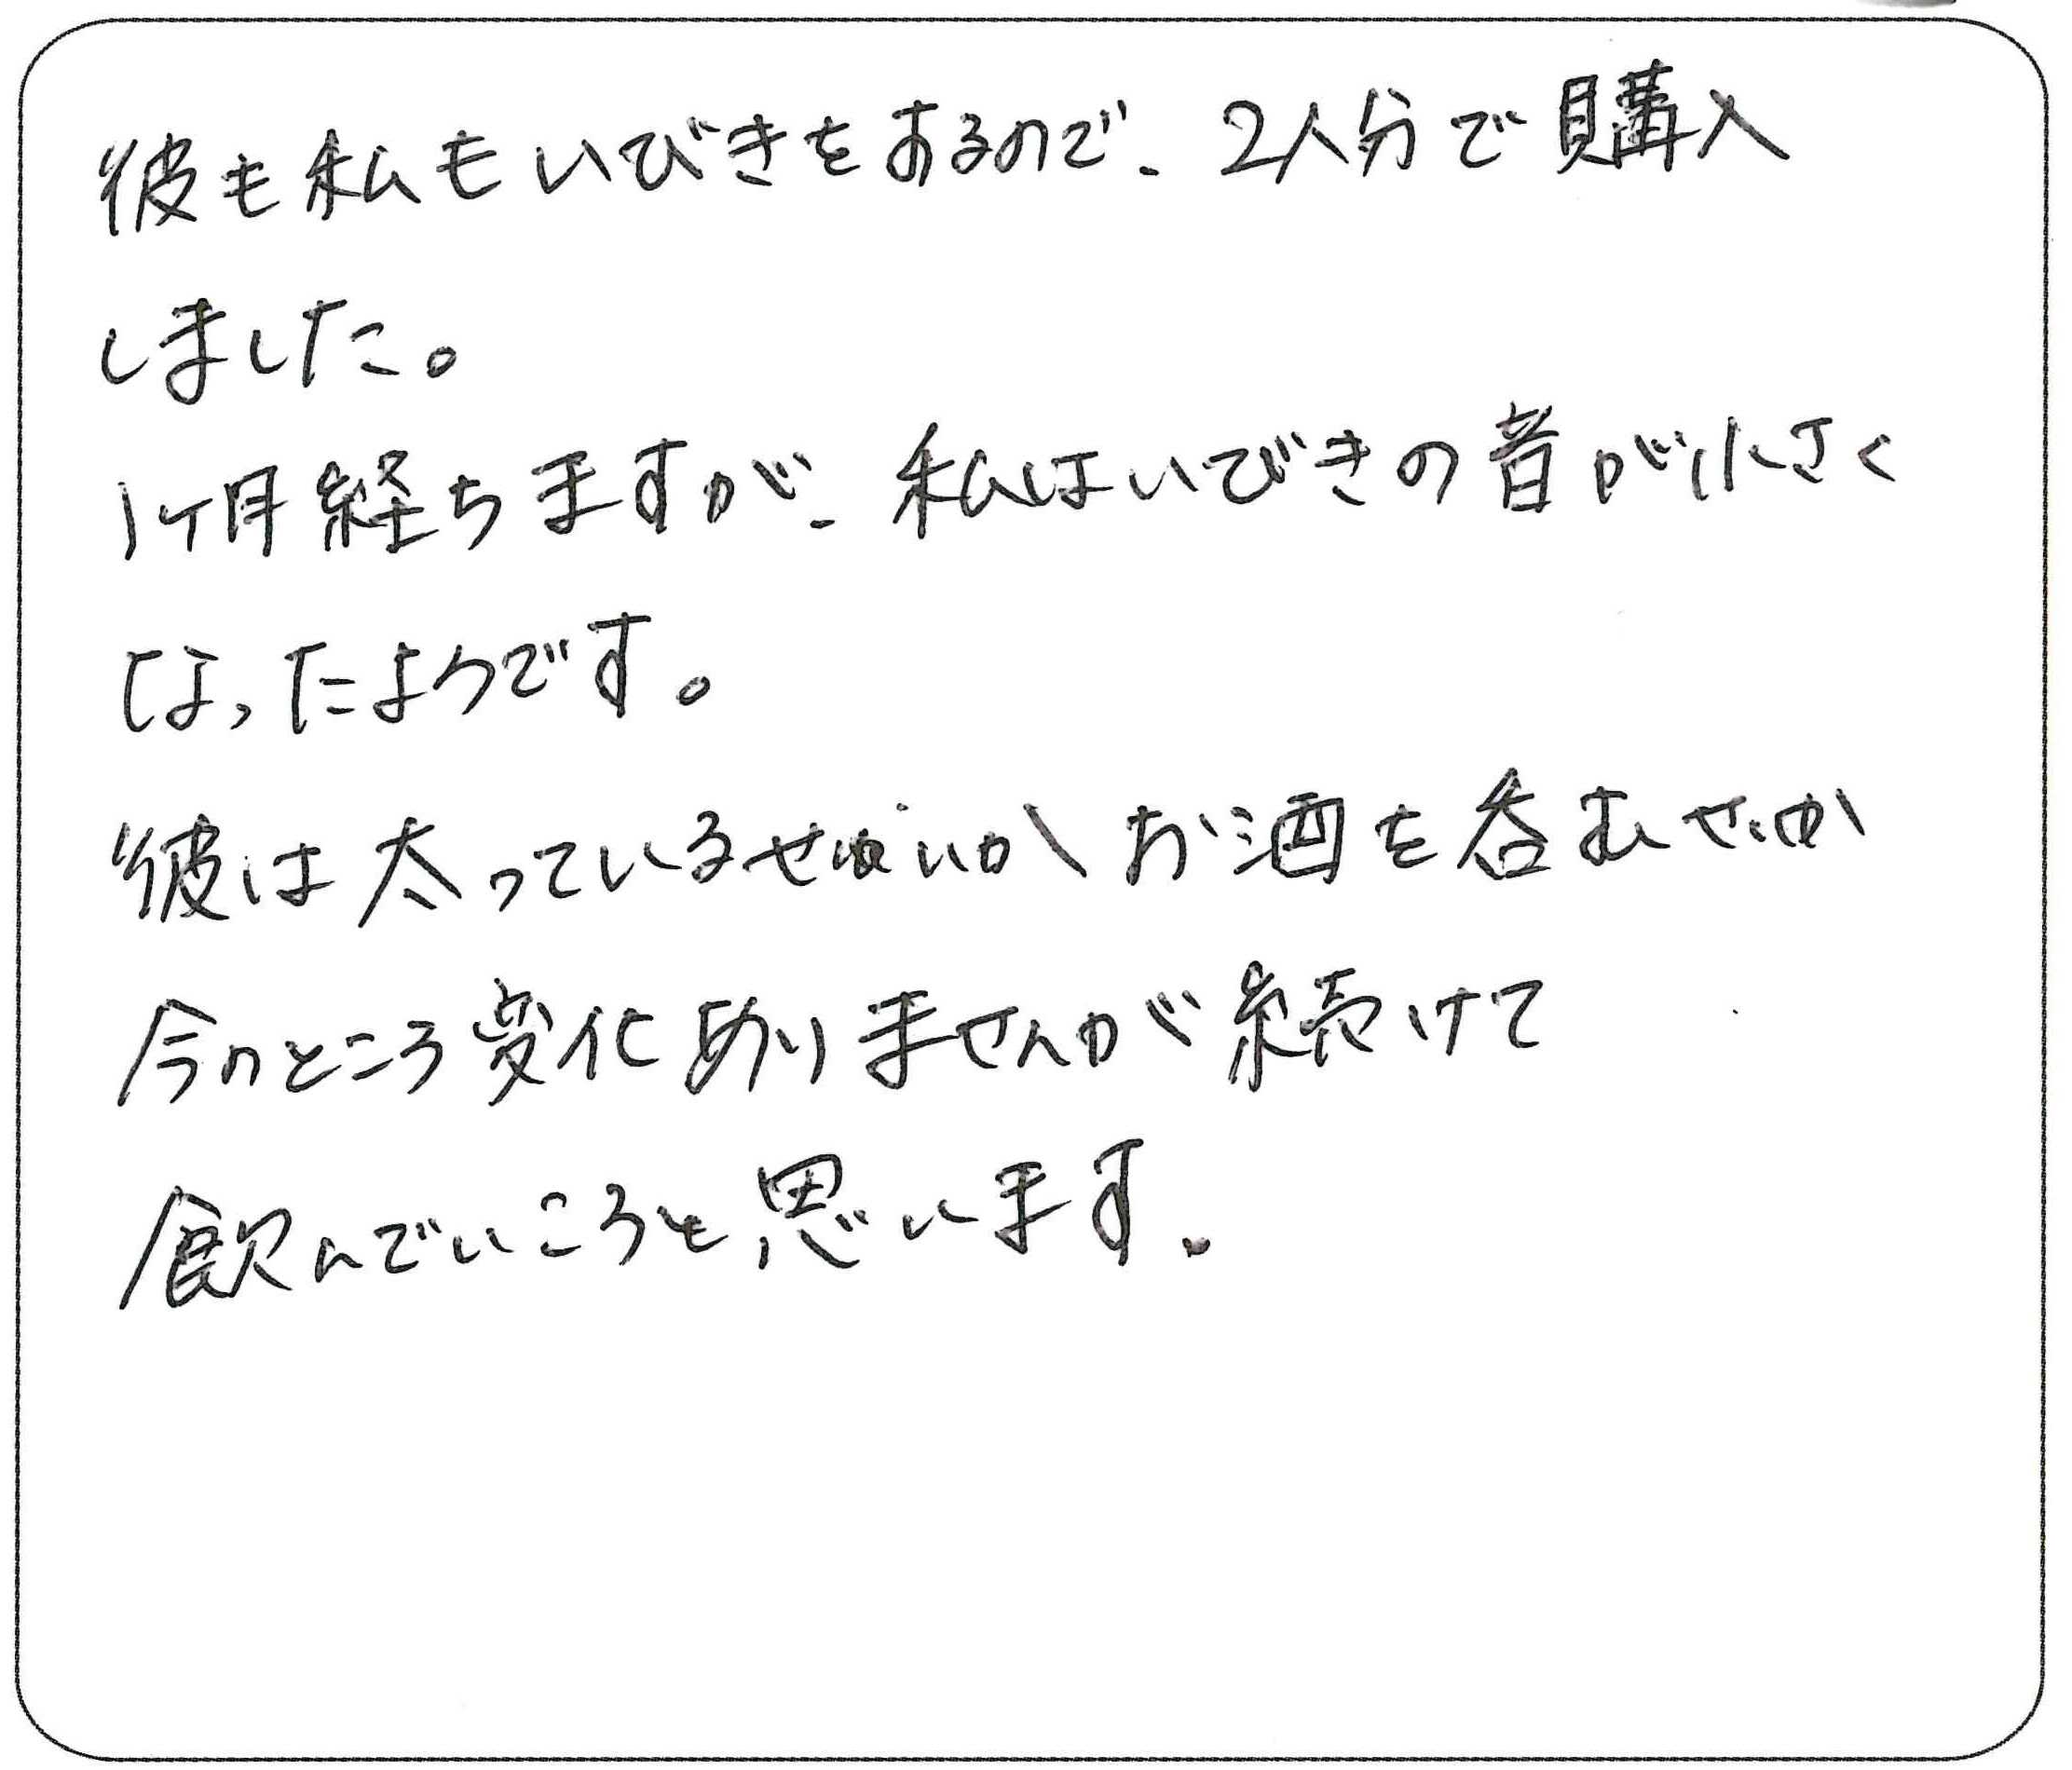 彼も私もいびきをするので、2人分で購入
しました。
1ヶ月経ちますが、私はいびきの音が小さく
なったようです。
彼は太っているせいかお酒を呑むせいか
今のところ変化ありませんが続けて
飲んでいこうと思います。